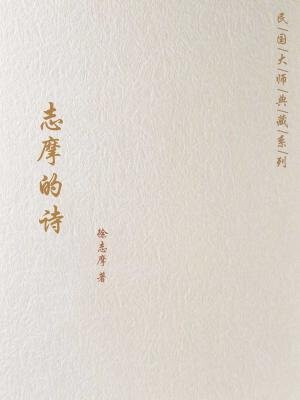 民|国|大|师|典|藏|系|列
志摩的诗
徐志摩 著